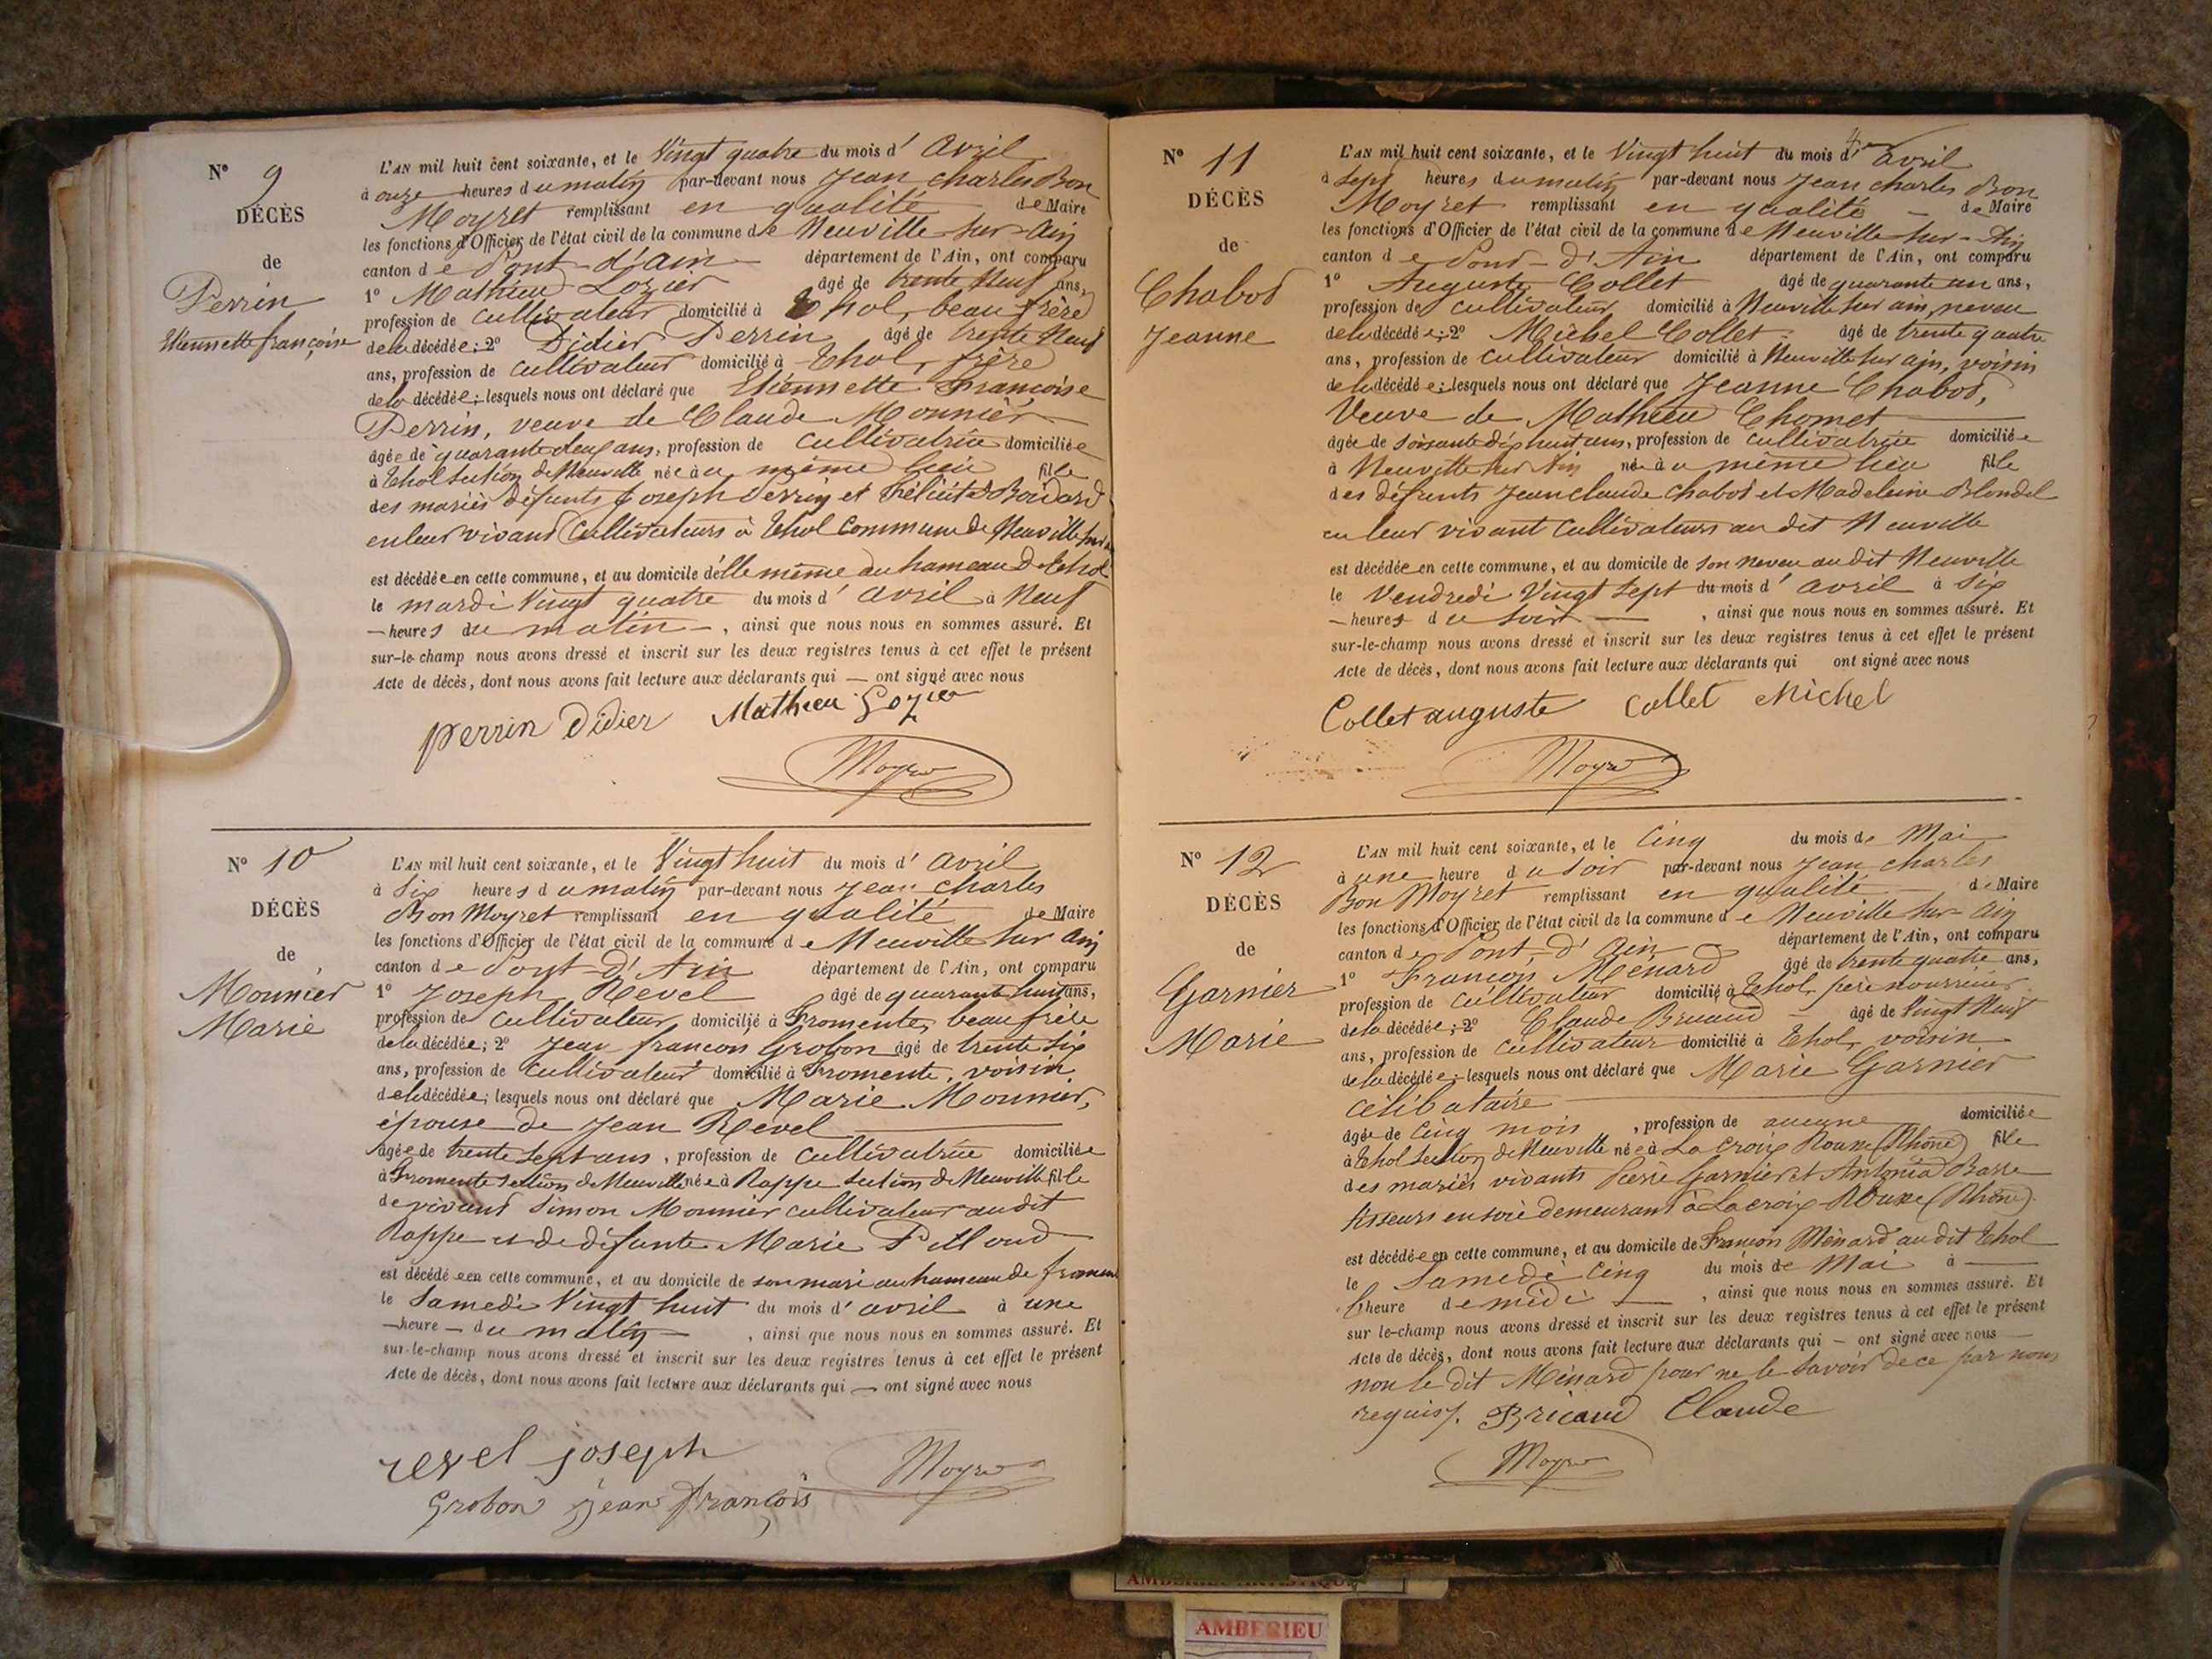 N° 9
DÉCÈS
de
Perrin
Etiennette françoise
L'AN mil huit cent soixante, et le Vingt quatre du mois d' Avril
à onze heures du matin par-devant nous Jean Charles Bon
Moyret remplissant en qualité de Maire
les fonctions d'Officier de l'état civil de la commune de Neuville sur Ain
canton de Pont-d'Ain département de l'Ain, ont comparu
1° Mathieu Lozier âgé de trente Neuf ans,
profession de cultivateur domicilié à Thol, beau frère
de la décédée; 2° Didier Perrin âgé de trente Neuf
ans, profession de cultivateur domicilié à Thol, frère
de la décédée; lesquels nous ont déclaré que Etiennette Françoise
Perrin, veuve de Claude Monnier
âgée de quarante deux ans, profession de cultivatrice domiciliée
à Thol section de Neuville née au même lieu fille
des mariés défunts Joseph Perrin et Félicité Boidard
en leur vivant Cultivateurs à Thol commune de Neuville sur
est décédée en cette commune, et au domicile d'elle même au hameau de Thol
le mardi Vingt quatre du mois d' avril à Neuf
heures du matin, ainsi que nous nous en sommes assuré. Et
sur-le-champ nous avons dressé et inscrit sur les deux registres tenus à cet effet le présent
Acte de décès, dont nous avons fait lecture aux déclarants qui — ont signé avec nous
perrin Didier Mathieu Lozier
Moyret
N° 10
DÉCÈS
de
Monnier
Marie
L'AN mil huit cent soixante, et le Vingt huit du mois d' Avril
à Six heures du matin par-devant nous Jean Charles
Bon Moyret remplissant en qualité de Maire
les fonctions d'Officier de l'état civil de la commune de Neuville sur Ain
canton de Pont-d'Ain département de l'Ain, ont comparu
1° Joseph Revel âgé de quarante huit ans,
profession de cultivateur domicilié à Fromente, beau frère
de la décédée; 2° Jean françois Grobon âgé de trente six
ans, profession de Cultivateur domicilié à Fromente, voisin
de la décédée; lesquels nous ont déclaré que Marie Monnier,
épouse de Jean Revel
âgée de trente sept ans, profession de cultivatrice domiciliée
à Fromente section de Neuville née à Rappe section de Neuville fille
de vivant Simon Monnier cultivateur au dit
Rappe et de défunte Marie Pilloud
est décédée en cette commune, et au domicile de son mari au hameau de fromente
le Samedi Vingt huit du mois d' avril à une
heure du matin, ainsi que nous nous en sommes assuré. Et
sur-le-champ nous avons dressé et inscrit sur les deux registres tenus à cet effet le présent
Acte de décès, dont nous avons fait lecture aux déclarants qui — ont signé avec nous
revel joseph Moyret
Grobon jean françois
N° 11
DÉCÈS
de
Chabod
Jeanne
L'AN mil huit cent soixante, et le Vingt huit du mois d' avril
à Sept heures du matin par-devant nous Jean Charles Bon
Moyret remplissant en qualité de Maire
les fonctions d'Officier de l'état civil de la commune de Neuville sur-Ain
canton de Pont-d'Ain département de l'Ain, ont comparu
1° Auguste Collet âgé de quarante un ans,
profession de cultivateur domicilié à Neuville sur ain, neveu
de la décédée; 2° Michel Collet âgé de trente quatre
ans, profession de cultivateur domicilié à Neuville sur ain, voisin
de la décédée; lesquels nous ont déclaré que Jeanne Chabod,
Veuve de Mathieu Chomet
âgée de soixante dix huit ans, profession de cultivatrice domiciliée
à Neuville sur Ain née au même lieu fille
des défunts Jean claude Chabod et Madeleine Blondel
en leur vivant Cultivateurs au dit Neuville
est décédée en cette commune, et au domicile de son neveu au dit Neuville
le Vendredi Vingt sept du mois d' avril à six
heures du soir, ainsi que nous nous en sommes assuré. Et
sur-le-champ nous avons dressé et inscrit sur les deux registres tenus à cet effet le présent
Acte de décès, dont nous avons fait lecture aux déclarants qui ont signé avec nous
Collet auguste Collet Michel
Moyret
N° 12
DÉCÈS
de
Garnier
Marie
L'AN mil huit cent soixante, et le Cinq du mois de Mai
à une heure du soir par-devant nous Jean charles
Bon Moyret remplissant en qualité de Maire
les fonctions d'Officier de l'état civil de la commune de Neuville sur-Ain
canton de Pont-d'Ain département de l'Ain, ont comparu
1° François Ménard âgé de trente quatre ans,
profession de cultivateur domicilié à Thol, père nourricier
de la décédée; 2° Claude Bricaud âgé de Vingt Neuf
ans, profession de cultivateur domicilié à Thol, voisin
de la décédée; lesquels nous ont déclaré que Marie Garnier
célibataire
âgée de Cinq mois, profession de aucune domiciliée
à Thol section de Neuville née à La croix Rousse (Rhône) fille
des mariés vivants Pierre Garnier et Antonia Basse
tisseurs en soie demeurant à La croix Rousse (Rhône)
est décédée en cette commune, et au domicile de François Ménard au dit Thol
le Samedi Cinq du mois de Mai à
l'heure de midi, ainsi que nous nous en sommes assuré. Et
sur le-champ nous avons dressé et inscrit sur les deux registres tenus à cet effet le présent
Acte de décès, dont nous avons fait lecture aux déclarants qui — ont signé avec nous
non le dit Ménard pour ne le savoir de ce par nous
requis. Bricaud Claude
Moyret
AMBERIEU